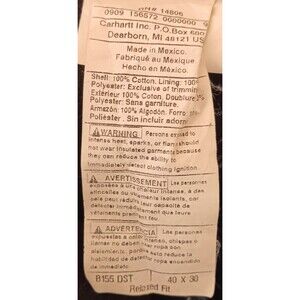 RN# 14806
0909 156572 0000000 9
Carhartt Inc. P.O.Box 600
Dearborn, MI 48121 US
Made in Mexico.
Fabriqué au Mexique
Hecho en México
Shell: 100% Cotton. Lining: 100%
Polyester: Exclusive of trimmin
Extérieur: 100% Coton, Doublure
Polyester: Sans garniture.
Armazón: 100% Algodón. Forro
Poliéster. Sin incluir adorn
WARNING Persons exposed to
intense heat, sparks, or flame should
not wear insulated garments because
they can reduce the ability to
immediately detect clothing ignition.
AVERTISSEMENT Les personnes
exposées à une chaleur intense, à des
étincelles ou
vêtements
immédiatement que leurs
vêtements ont pris feu.
ADVERTENCIA Las personas
expuestas a calor intenso, chispas o
no deben
reducir su
habilidad de detectar ropa encendida
de inmediato.
B155 DST 40 X 30
Relaxed Fit